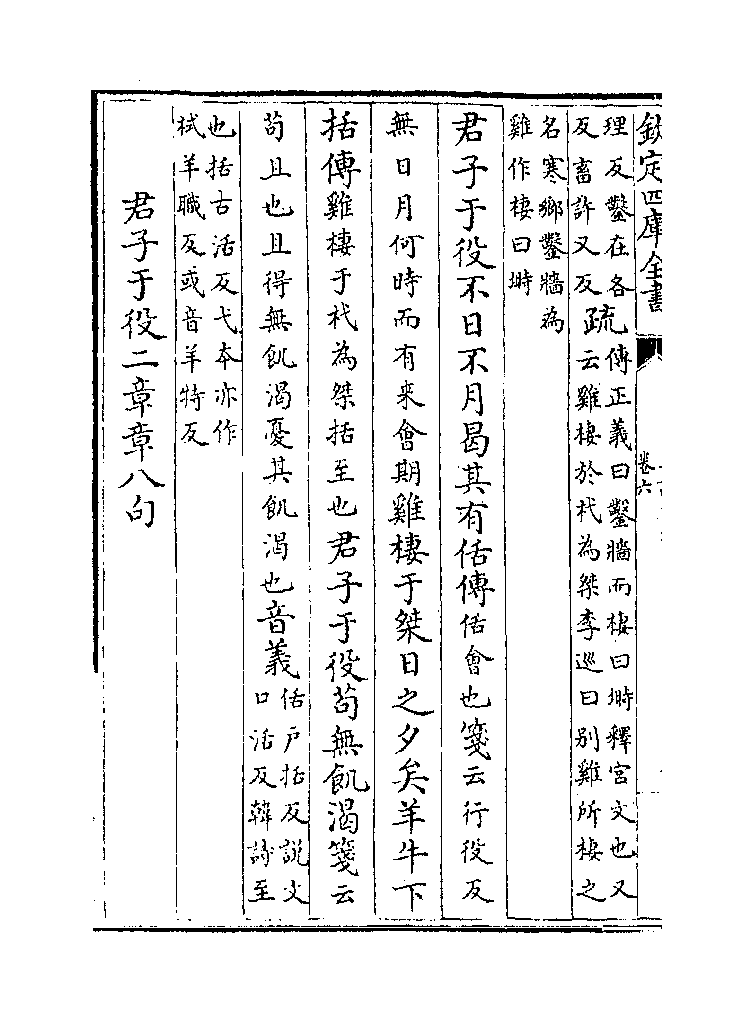 欽定四庫全書
卷六
理反鑿在各
反畜許又反
疏
傳正義曰鑿牆而棲曰塒釋宮文也又
云雞棲於杙為桀李巡曰别雞所棲之
名寒鄉鑿牆為
雞作棲曰塒
君子于役不日不月曷其有佸傳佸會也箋云行役反
無日月何時而有来會期雞棲于桀日之夕矣羊牛下
括傳雞棲于杙為桀括至也君子于役苟無飢渴箋云
苟且也且得無飢渴憂其飢渴也音義
佸戶括反說文
口活反韓詩至
也括古活反弋本亦作
栻羊職反或音羊特反
君子于役二章章八句